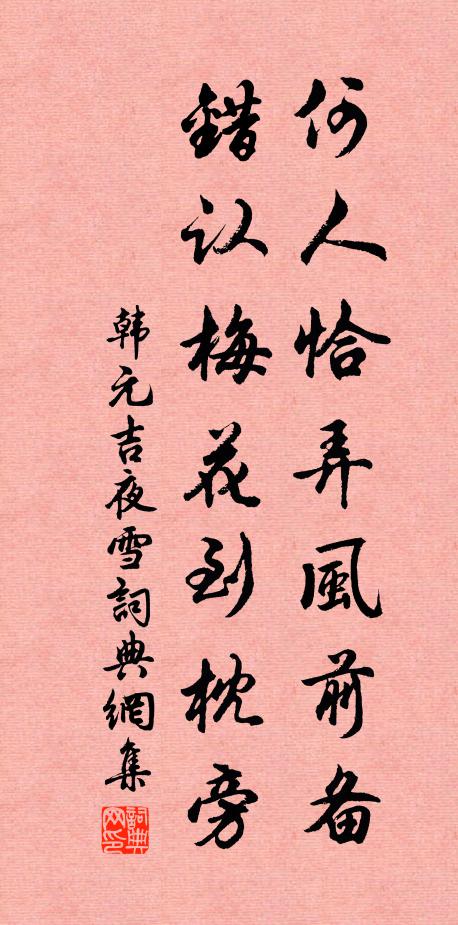 何人恰弄風前备
错认梅花到枕旁
韩元吉夜雪詞典網集
詞典网印